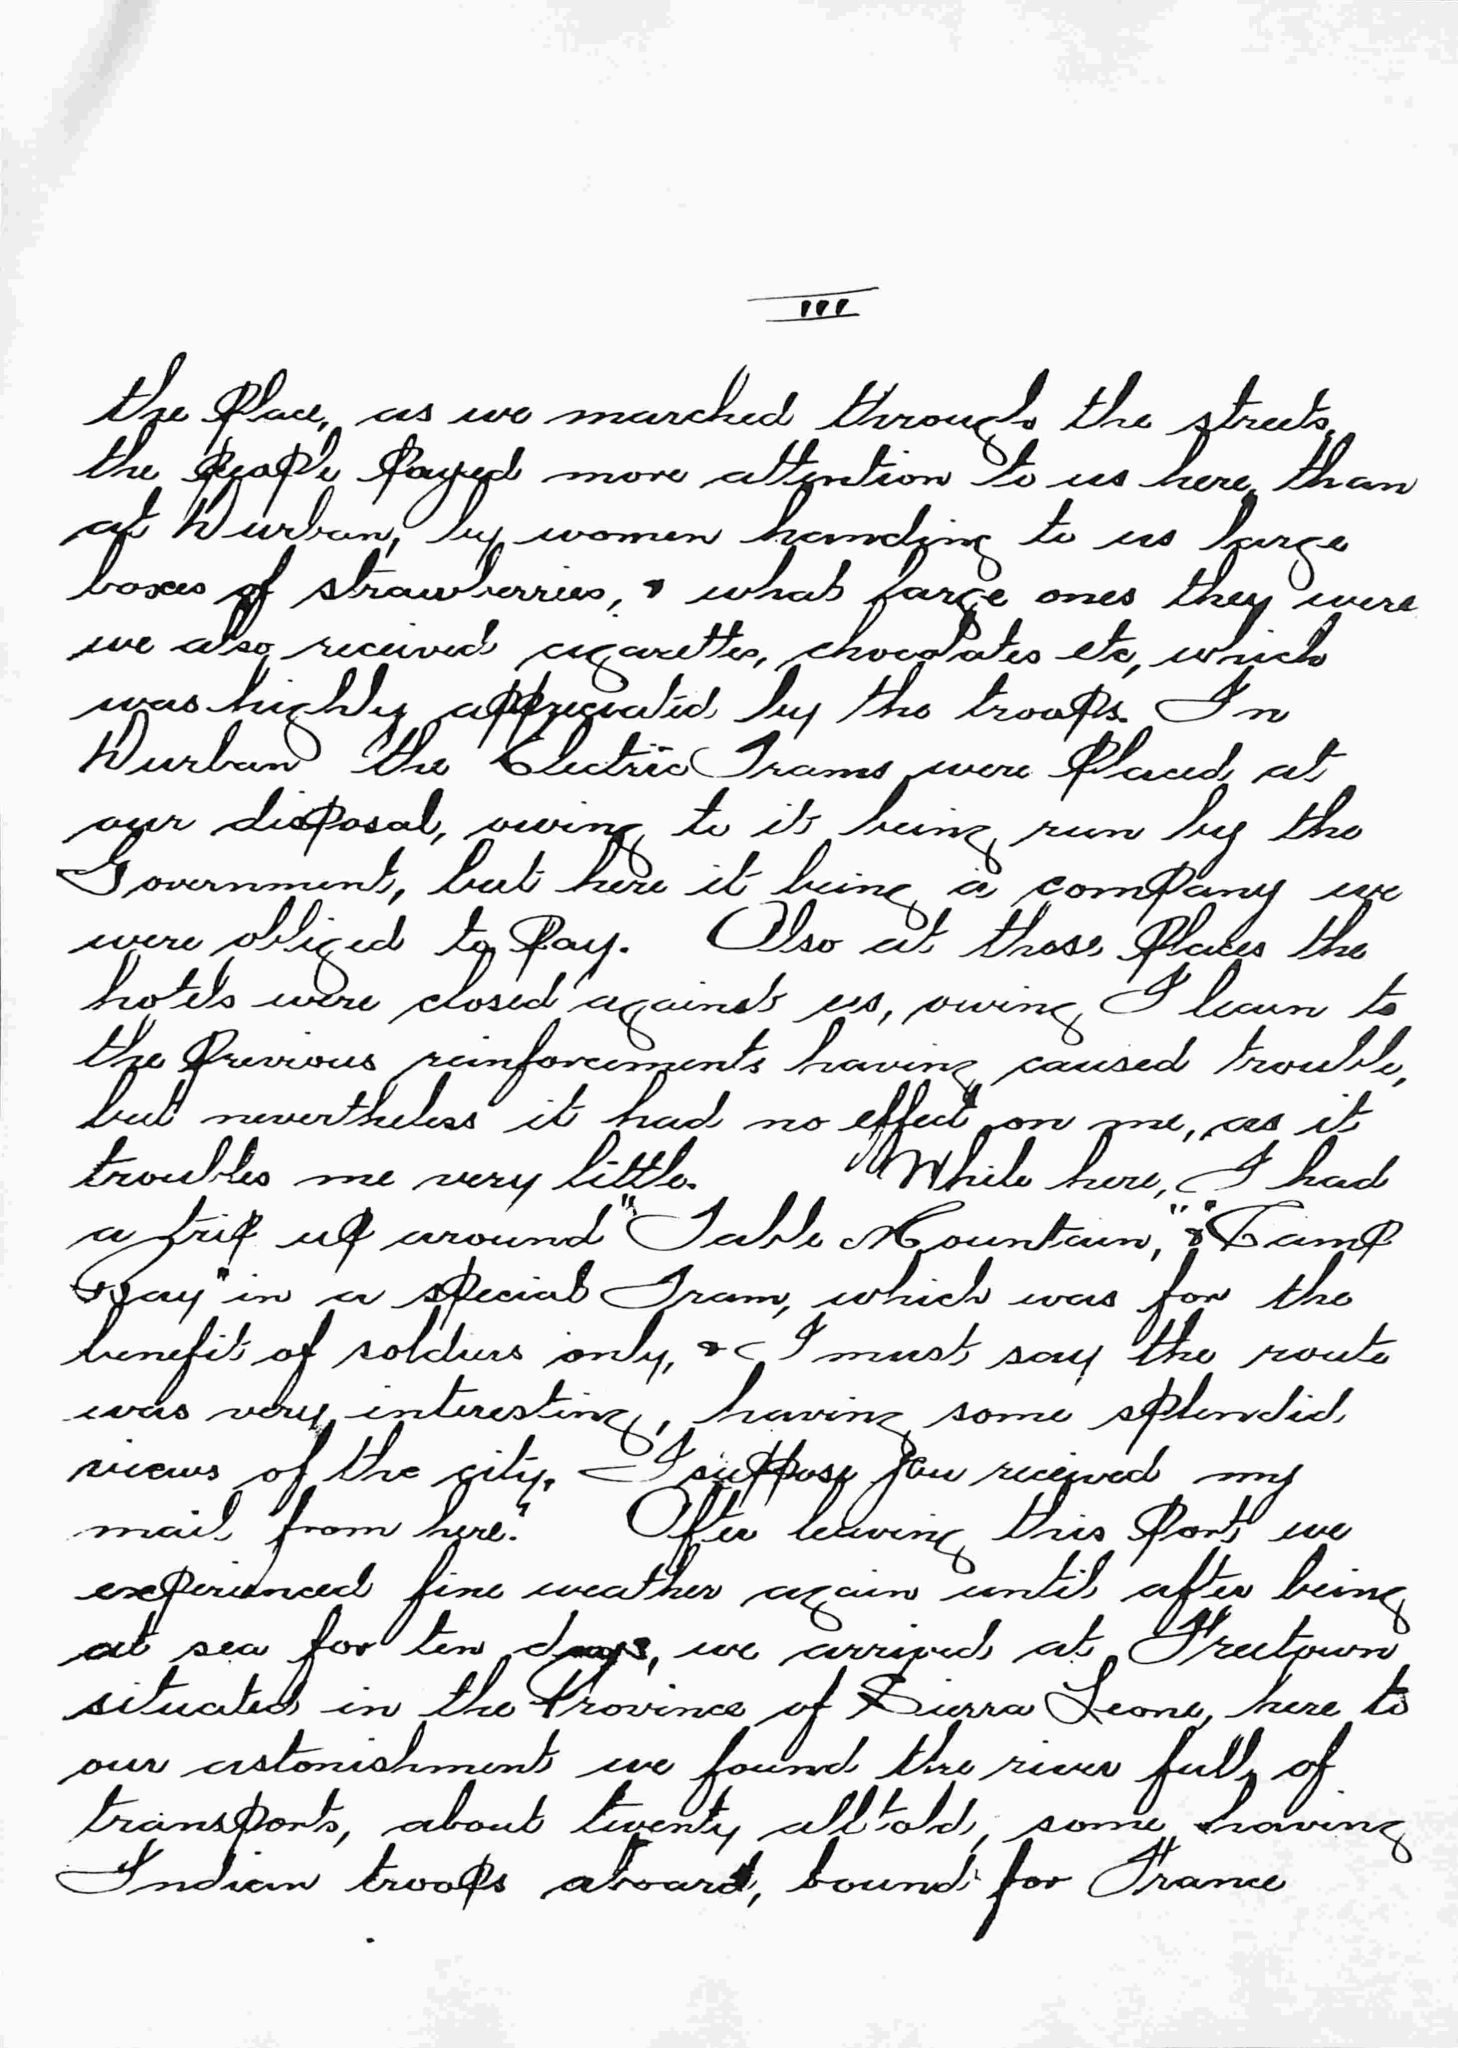 III
the place, as we marched through the streets,
the people payed more attention to us here, than
at Durban, by women handing to us large
boxes of strawberries, & what large ones they were
we also received cigarettes, chocolates etc, which
was highly appreciated by the troops. In
Durban the Electric Trams were placed at
our disposal, owing to it being run by the
Government, but here it being a company we
were obliged to pay. Also at those places the
hotels were closed against us, owing I learn to
the previous reinforcements having caused trouble,
but nevertheless it had no effect on me, as it
troubles me very little. While here, I had
a trip up around "Table Mountain," & "Camp
Bay" in a special Tram, which was for the
benefit of soldiers only, & I must say the route
was very interesting, having some splendid
views of the city. I suppose you received my
mail from here." After leaving this port we
experienced fine weather again until after being
at sea for ten days, we arrived at Freetown
situated in the Province of Sierra Leone, here to
our astonishment we found the river full of
transports, about twenty all told, some having
Indian troops aboard, bound for France